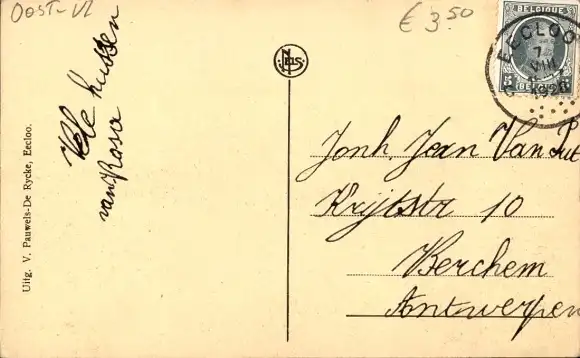 OOST-Vl
€ 3.50
Vele kussen
van Rosa
Uitg. V. Pauwels-De Rycke, Eecloo.
NELS
BELGIQUE
5
EECLOO
7
VIII
1926
Jonh. Jean Van
Krijtstr 10
Berchem
Antwerpen